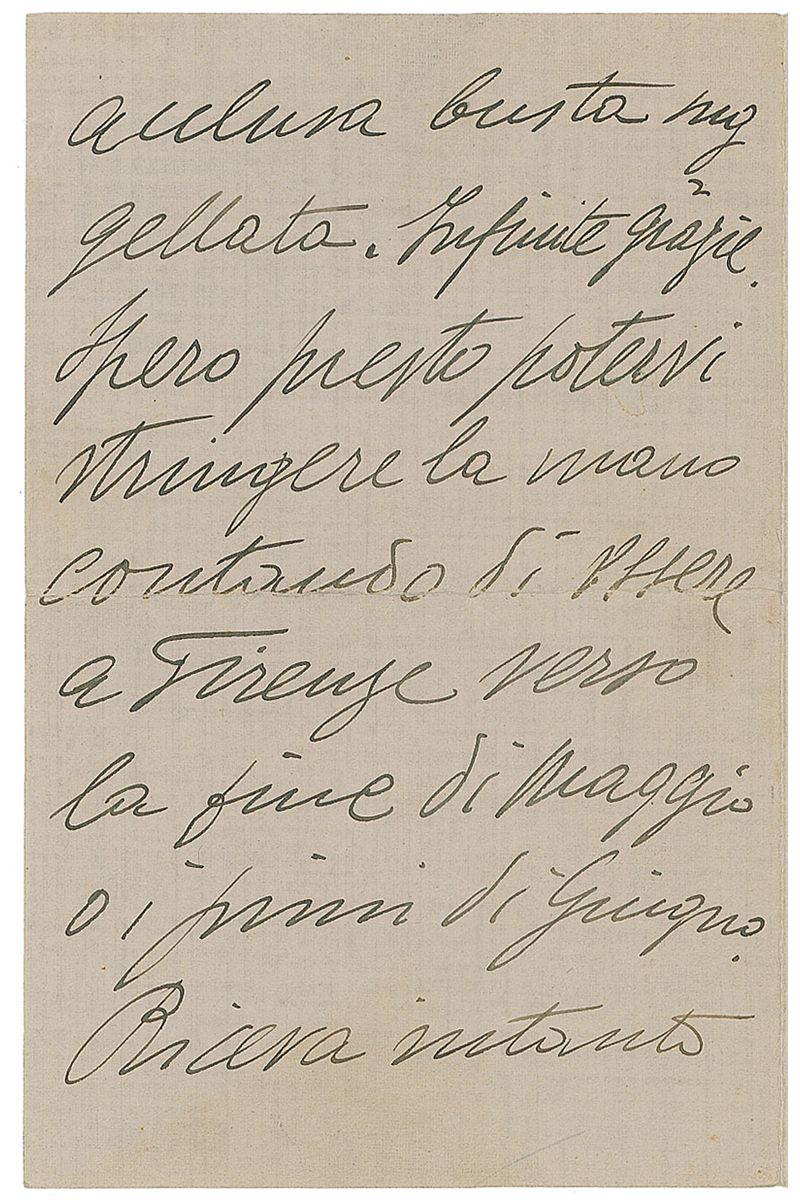 acclusa busta sug
gellata. Infinite grazie.
Spero presto potervi
stringere la mano
contando di essere
a Firenze verso
la fine di Maggio
o i primi di Giugno.
Riceva intanto